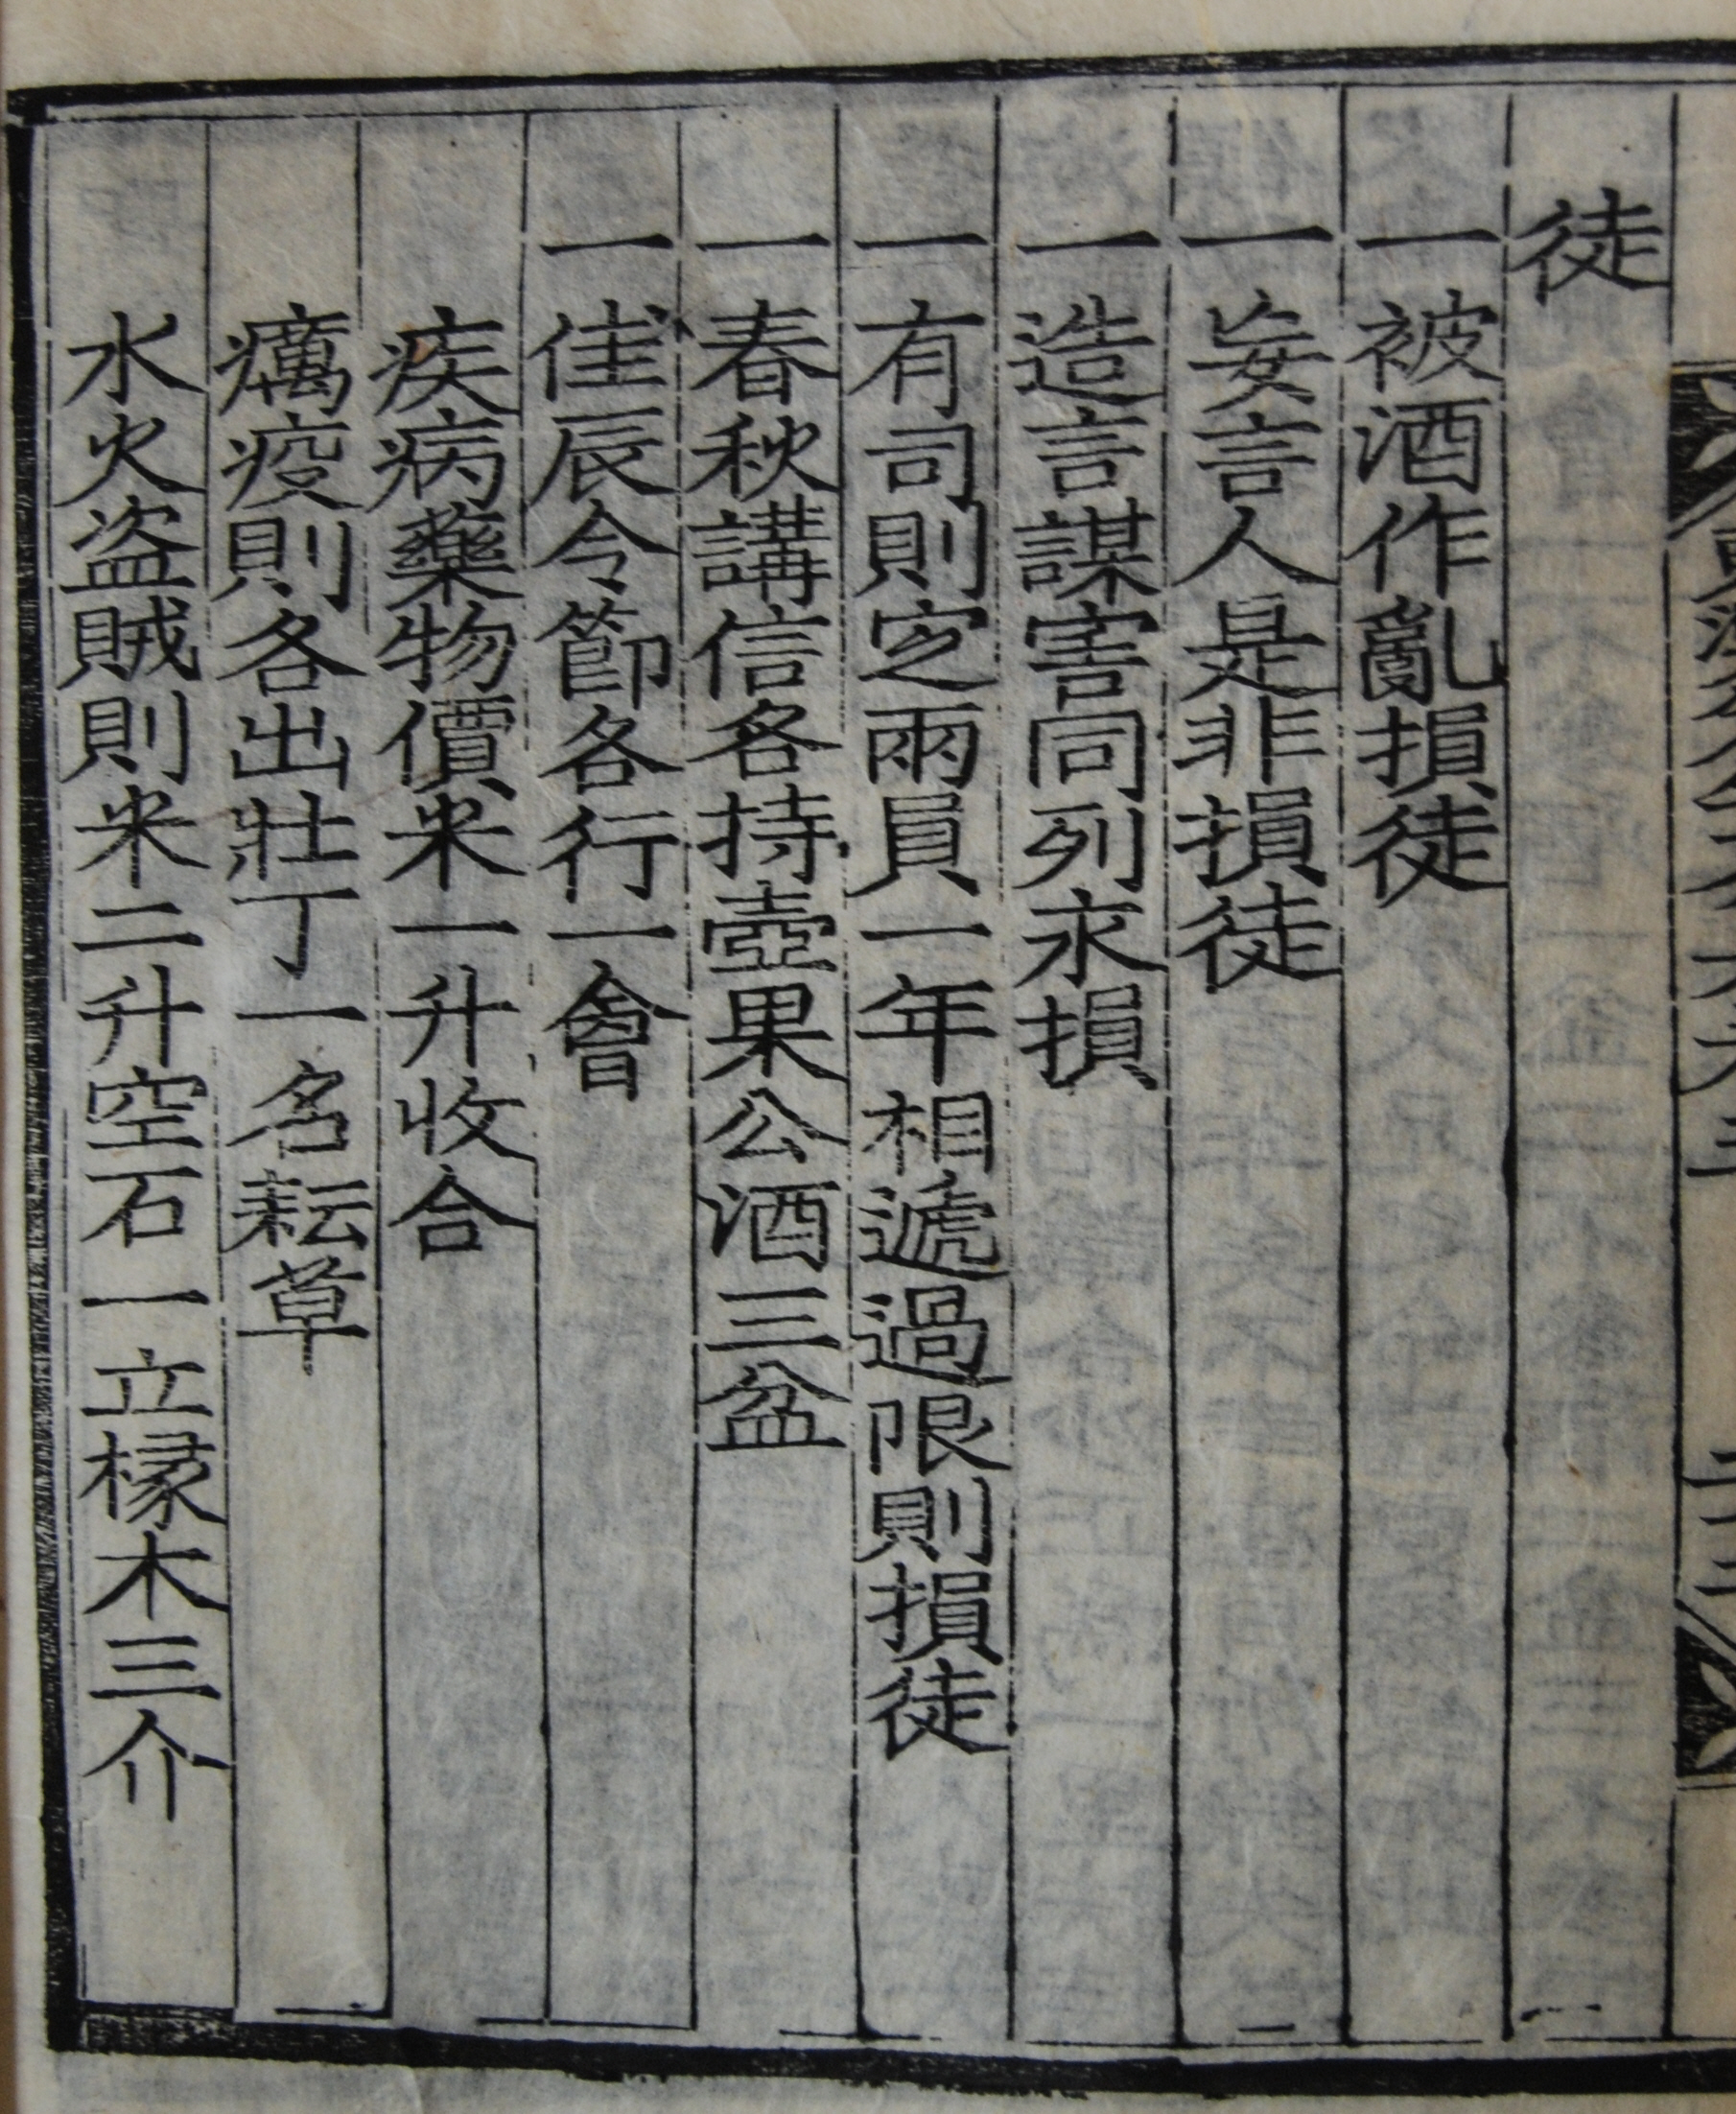 徒
一被酒作亂損徒
一妄言人是非損徒
一造言謀害同列永損
一有司則定兩員一年相遞過限則損徒
一春秋講信各持壺果公酒三盆
一佳辰令節各行一會
疾病藥物價米一升收合
癘疫則各出壯丁一名耘草
水火盜賊則米二升空石一立椽木三介